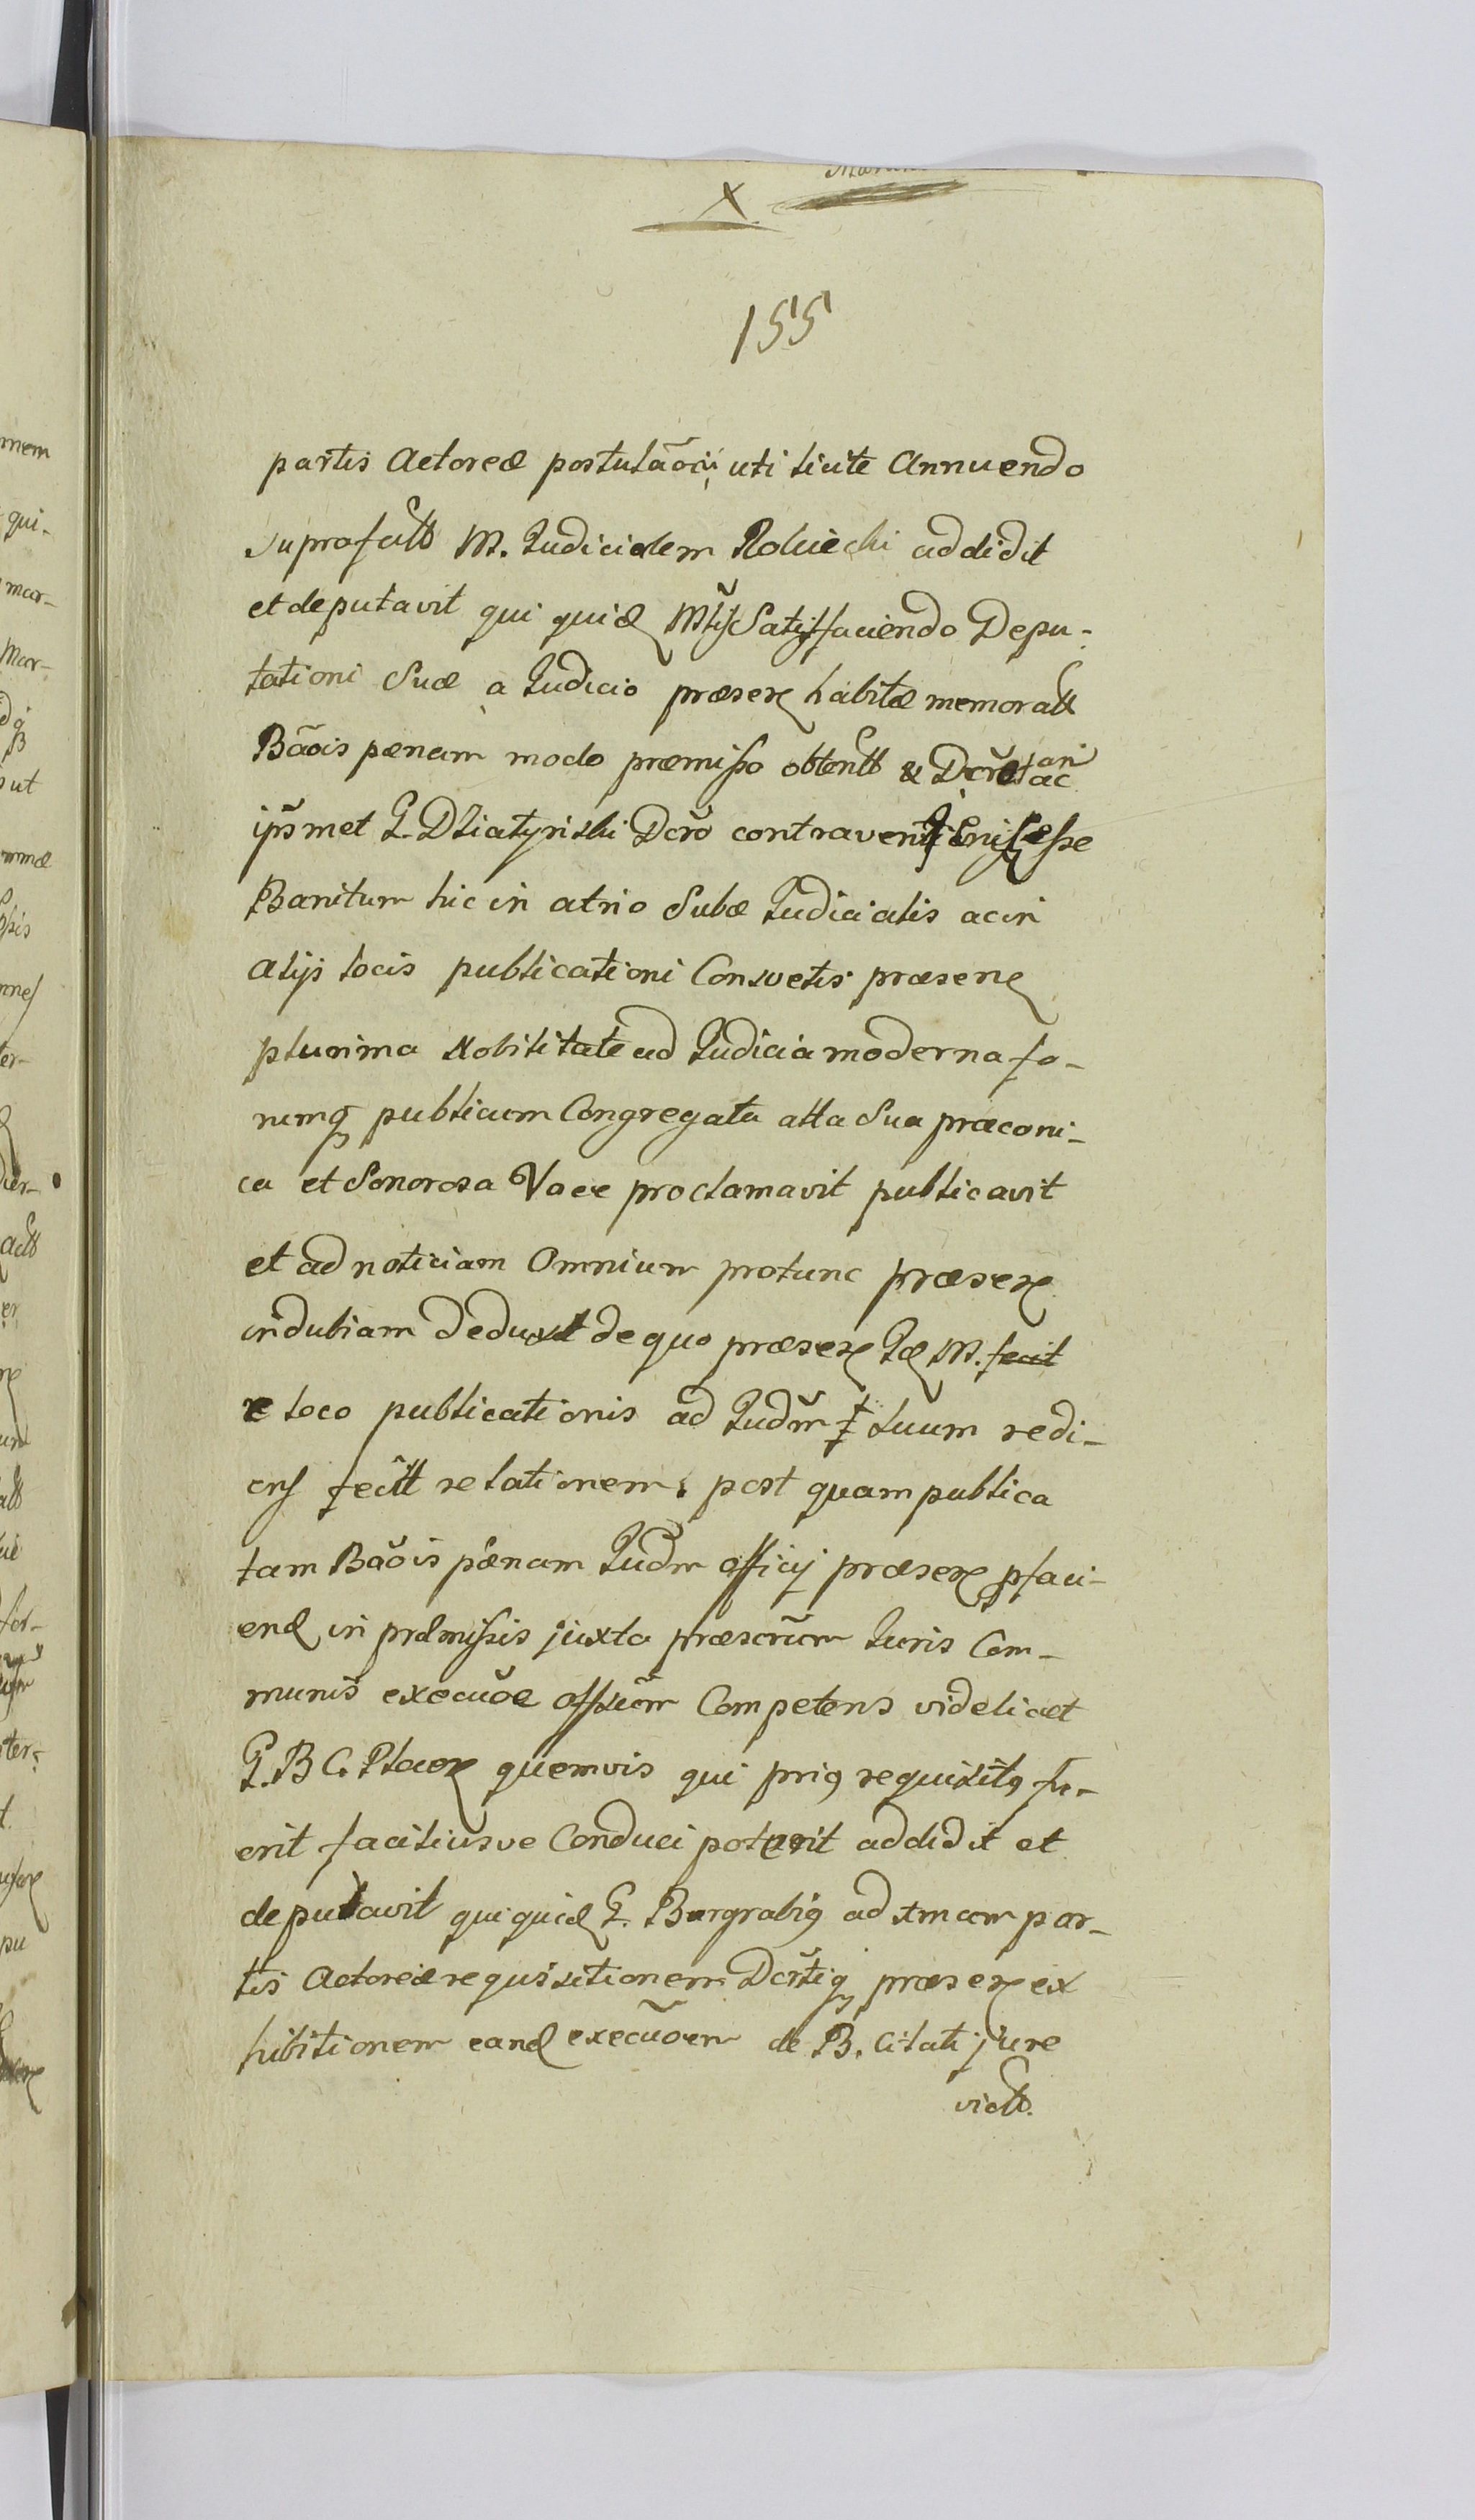 X
155
partis Actoreæ postulãoi, uti licite Annuendo
suprafatt M. Judicialem Rokicchi addidit
et deputavit qui quid Mtis Satisfaciendo Depu-
tationi Suæ a Judicio præsen habitæ memoratt
Bãois pænam modo præmisso obtentt & Decret ac
ipsmet G. Dziatynski Dcro contraven esse
Banitum hic in atrio Subæ Judicialis ac in
alijs locis publicationi Consvetis præsene
plurima Nobilitate ad Judicia moderna fo-
rumq publicum Congregata alta Sua præconi-
ca et Sonorosa Voce proclamavit publicavit
et ad noticiam Omnium protunc præsen
indubiam deduxit de quo præsen Id M. fecit
e loco publicationis ad Judm suum redi-
ens fecitt relationem, post quam publica
tam Bãois pænam Judm officij præsen pfaci-
end in præmissis juxta præscrum Juris Com-
munis execuõe offium Competens videlicet
G. B C. Placen quemvis qui prig requisitg fu-
erit faciliusve Conduci poterit addidit et
deputavit qui quid G. Burgrabig ad primam par-
tis Actoreæ requisitionem Dcrtiq præsen ex
hibitionem eand execuõem de B. Citati jure
victt.